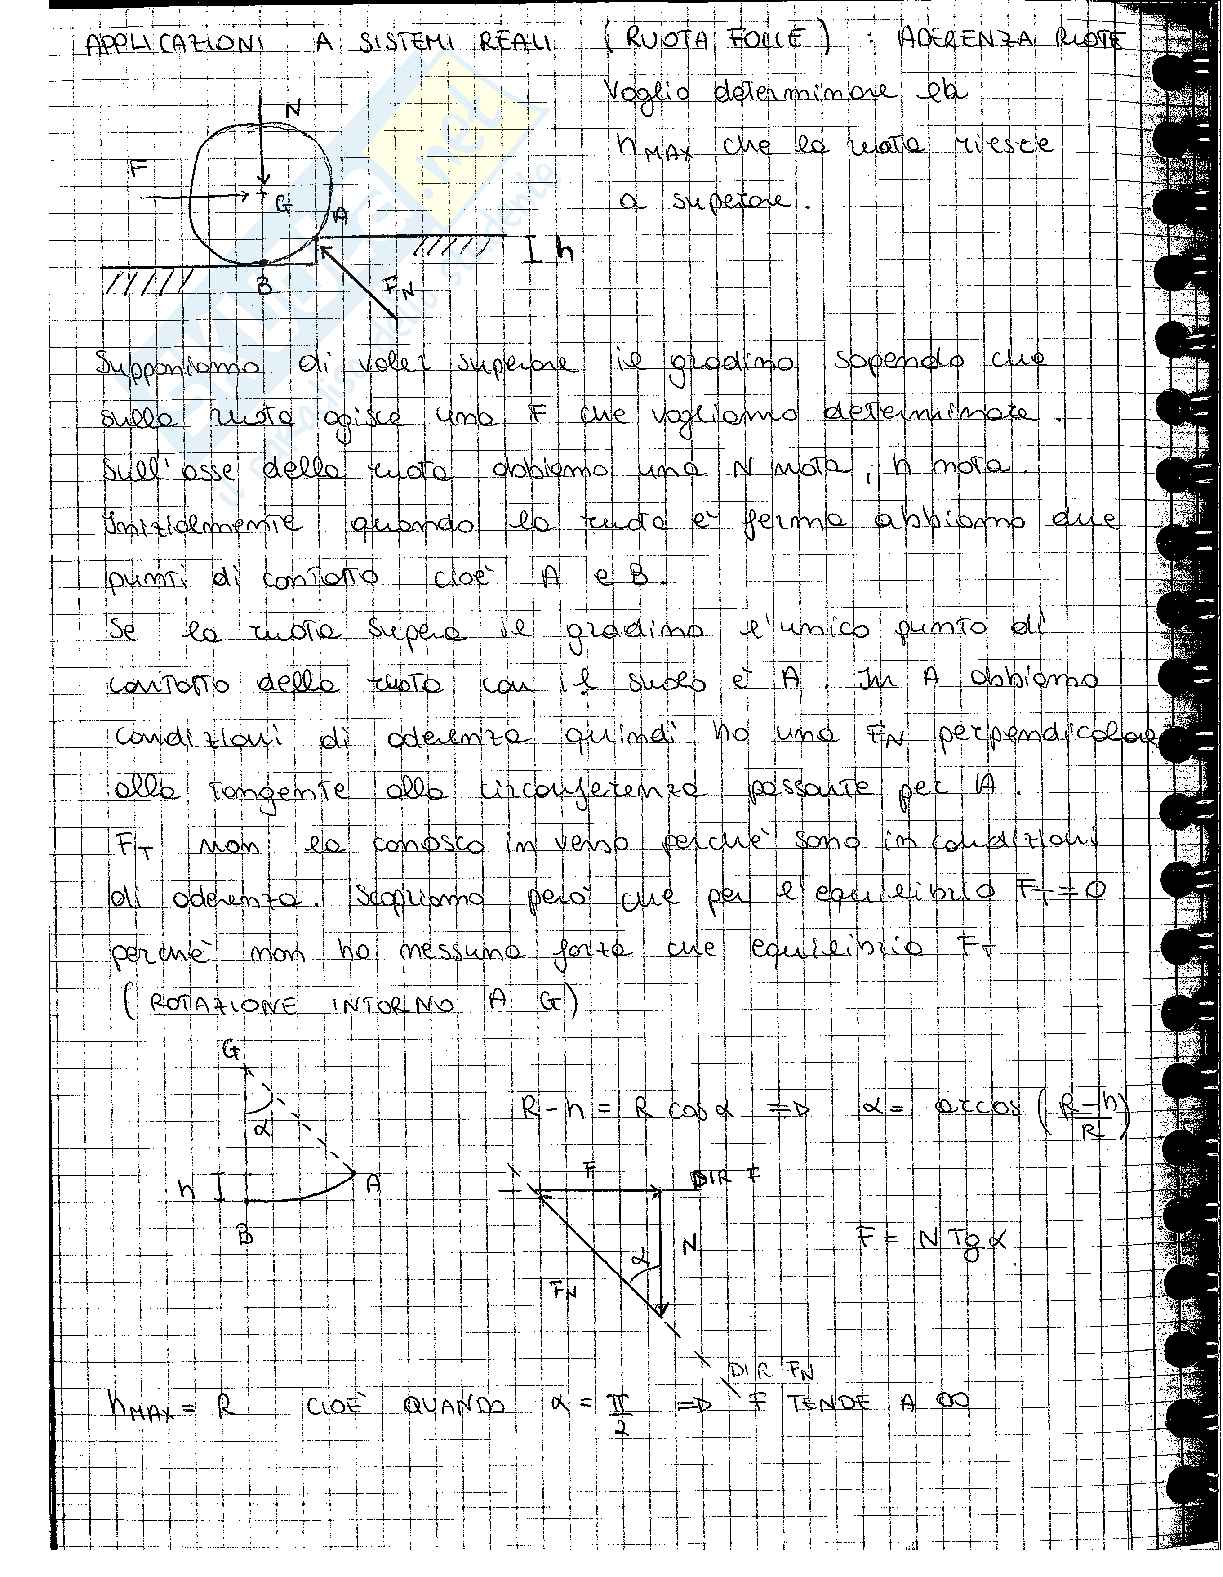 APPLICAZIONI A SISTEMI REALI (RUOTA FOLLE) : ADERENZA RUOTE
Voglio determinare la
hMAX che la ruota riesce
a superare.
N
F
G
A
h
B
FN
Supponiamo di voler superare il gradino sapendo che
sulla ruota agisce una F che vogliamo determinare.
Sull'asse della ruota abbiamo una N nota, h nota.
Inizialmente quando la ruota è ferma abbiamo due
punti di contatto cioè A e B.
Se la ruota supera il gradino l'unico punto di
contatto della ruota con il suolo è A. In A abbiamo
condizioni di aderenza quindi ho una FN perpendicolare
alla tangente alla circonferenza passante per A.
FT non la conosco in verso perchè sono in condizioni
di aderenza. Scopriamo però che per l'equilibrio FT=0
perchè non ho nessuna forza che equilibria FT
(ROTAZIONE INTORNO A G)
G
α
h
A
B
R-h = R cos α => α = arcos (R-h/R)
F
DIR F
N
α
FN
DIR FN
F = N Tg α
hMAX = R CIOÈ QUANDO α = π/2 => F TENDE A ∞